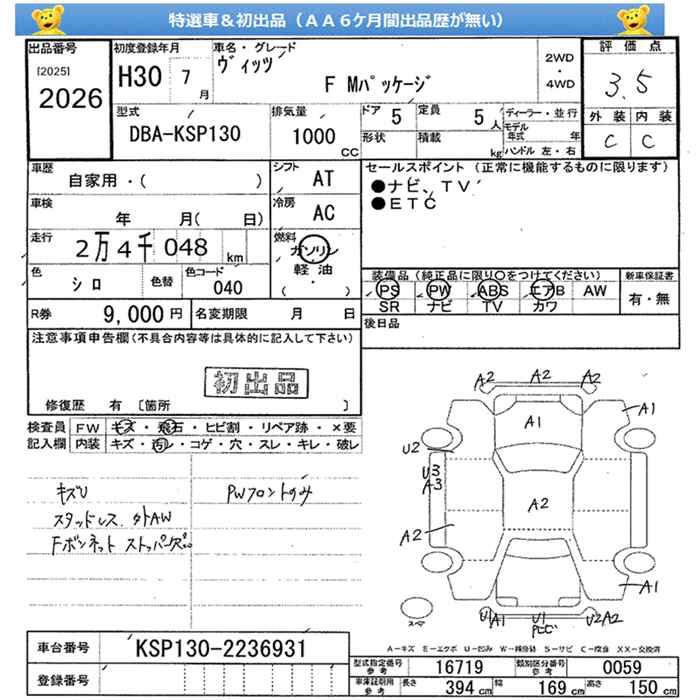 特選車＆初出品（ＡＡ６ケ月間出品歴が無い）
出品番号
[2025]
2026
初度登録年月
H30 7 月
車名・グレード
ヴィッツ
F Mパッケージ
2WD
・
4WD
評価点
3.5
外装 内装
C C
型式
DBA-KSP130
排気量
1000 CC
ドア 5
定員 5 人
形状
積載 kg
ディーラー・並行
モデル年式 年
ハンドル 左・右
車歴
自家用・( )
シフト AT
車検
年 月( 日)
冷房 AC
走行
2万4千048 km
燃料
ガソリン
軽油
( ・ )
色 シロ
色替
色コード 040
R券 9,000 円
名変期限 月 日
セールスポイント（正常に機能するものに限ります）
●ナビ、TV
●ETC
装備品（純正品に限り〇をつけてください）
新車保証書
PS PW ABS エアB AW
SR ナビ TV カワ
有・無
後日品
注意事項申告欄(不具合内容等は具体的に記入して下さい)
初出品
修復歴 有 〔箇所 〕
検査員 FW キズ・飛石・ヒビ割・リペア跡・×要
記入欄 内装 キズ・汚レ・コゲ・穴・スレ・キレ・破レ
キズU
PWフロントのみ
スタッドレス 外AW
Fボンネット ストッパー欠
A2 A2 A2
A1
A1
U2
U3
A3
A2
A2
A1
U1 A1
U1
U2 A2
スペア
A－キズ E－エクボ U－凹み W－補修跡 S－サビ C－腐食 XX－交換済
車台番号 KSP130-2236931
登録番号
型式指定番号 参考 16719
類別区分番号 参考 0059
車庫証明用 参考 長さ 394 cm 幅 169 cm 高さ 150 cm